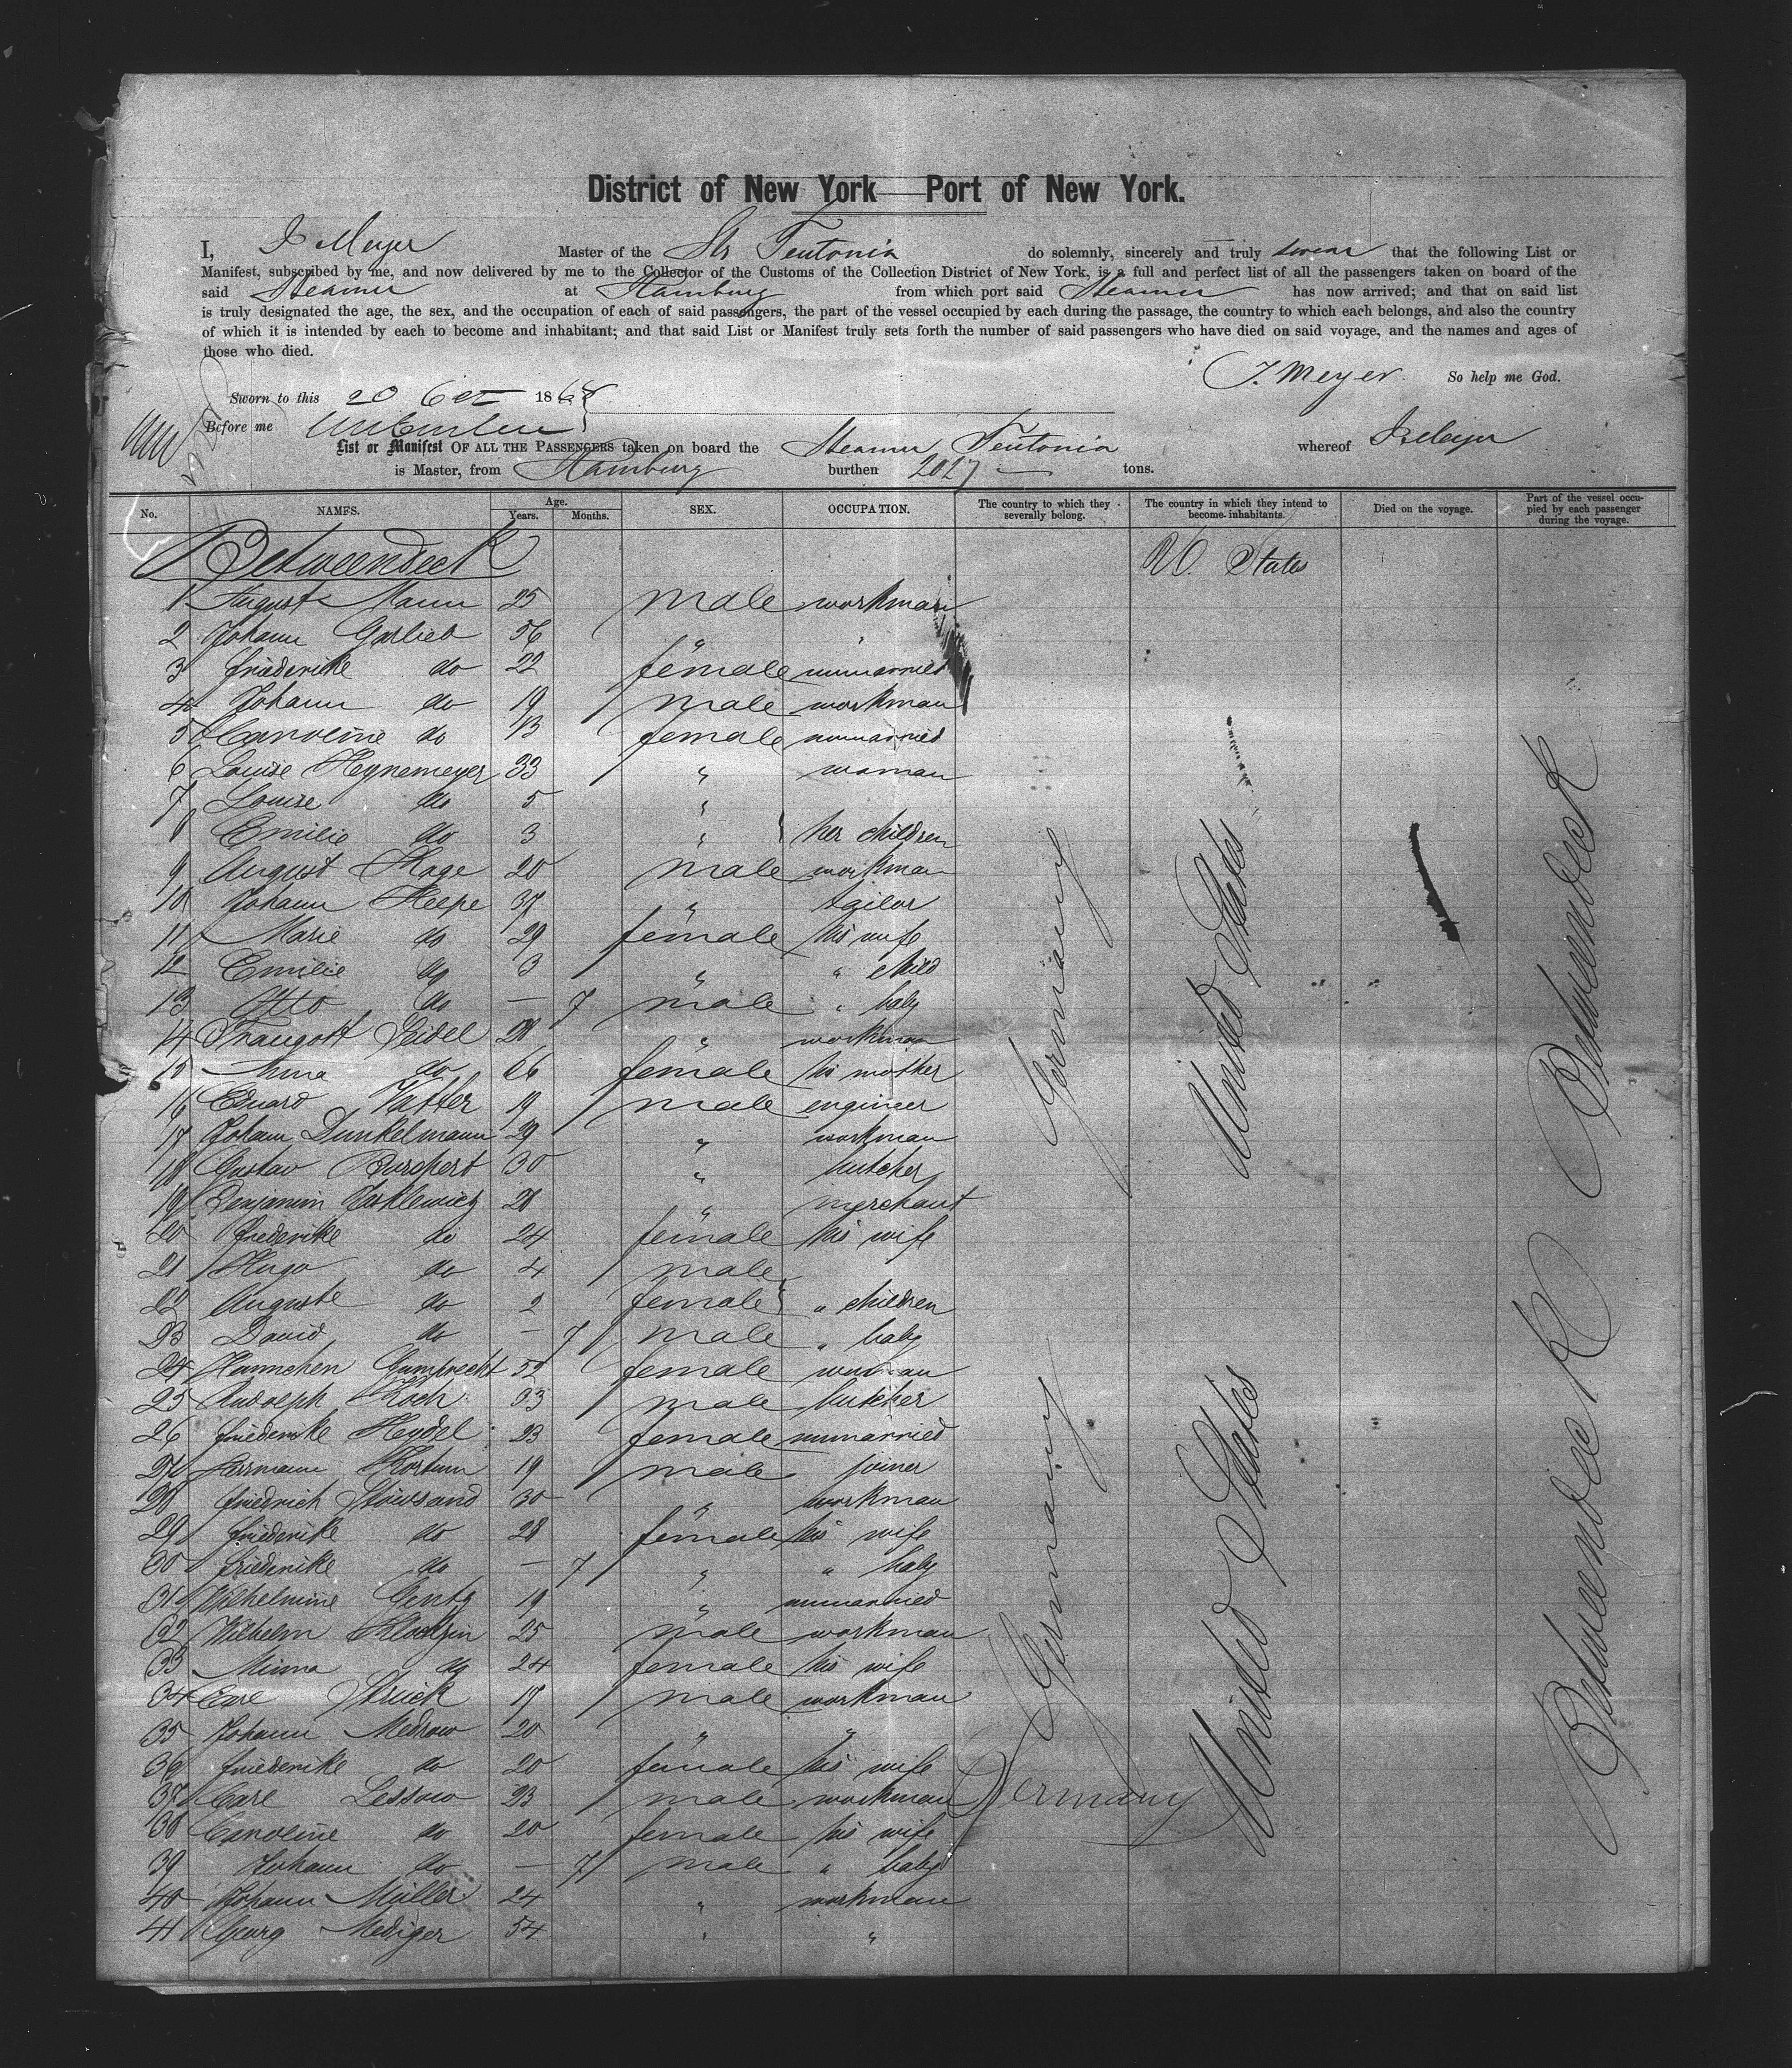 District of New York — Port of New York.
I, J Meyer Master of the Str Teutonia do solemnly, sincerely and truly swear that the following List or
Manifest, subscribed by me, and now delivered by me to the Collector of the Customs of the Collection District of New York, is a full and perfect list of all the passengers taken on board of the
said Steamer at Hamburg from which port said Steamer has now arrived; and that on said list
is truly designated the age, the sex, and the occupation of each of said passengers, the part of the vessel occupied by each during the passage, the country to which each belongs, and also the country
of which it is intended by each to become and inhabitant; and that said List or Manifest truly sets forth the number of said passengers who have died on said voyage, and the names and ages of
those who died.
J. Meyer. So help me God.
Sworn to this 20 Oct 1868
Before me
List or Manifest OF ALL THE PASSENGERS taken on board the Steamer Teutonia whereof J Meyer
is Master, from Hamburg burthen 2027 tons.
No. NAMES. Age. Years. Months. SEX. OCCUPATION. The country to which they severally belong. The country in which they intend to become inhabitants. Died on the voyage. Part of the vessel occupied by each passenger during the voyage.
Betweendeck U. States
1 August Mann 25 male workman
2 Johann Garlieb 56 " "
3 Friederike do 22 female unmarried
4 Johann do 19 male workman
5 Caroline do 13 female unmarried
6 Louise Heynemeyer 33 " woman
7 Louise do 5 "
8 Emilie do 3 " her children
9 August Hage 20 male workman
10 Johann Heepe 37 " tailor
11 Marie do 29 female his wife
12 Emilie do 3 " " child
13 Otto do — 7 male " baby
14 Traugott Seidel 28 " workman
15 Anna do 66 female his mother
16 Eduard Vatter 19 male engineer
17 Johann Dunkelmann 29 " workman
18 Gustav Burchert 30 " butcher
19 Benjamin 28 " merchant
20 Friederike do 24 female his wife
21 Hugo do 4 male
22 Auguste do 2 female " children
23 David do — 7 male " baby
24 Hannchen Gumprecht 52 female woman
25 Rudolph Koch 33 male butcher
26 Friederike Heydel 23 female unmarried
27 Hermann Kortum 19 male joiner
28 Friedrich Stöwsand 30 " workman
29 Friederike do 28 female his wife
30 Friederike do — 7 " " baby
31 Wilhelmine Gentz 19 " unmarried
32 Wilhelm Klockzin 25 male workman
33 Minna do 24 female his wife
34 Carl Struck 17 male workman
35 Johann Medrow 20 " "
36 Friederike do 20 female his wife
37 Carl Lessow 23 male workman
38 Caroline do 20 female his wife
39 Johann do — 7 male " baby
40 Johann Müller 24 " workman
41 Georg Mediger 54 " "
Germany
Germany
Germany
United States
United States
Betweendeck
Betweendeck